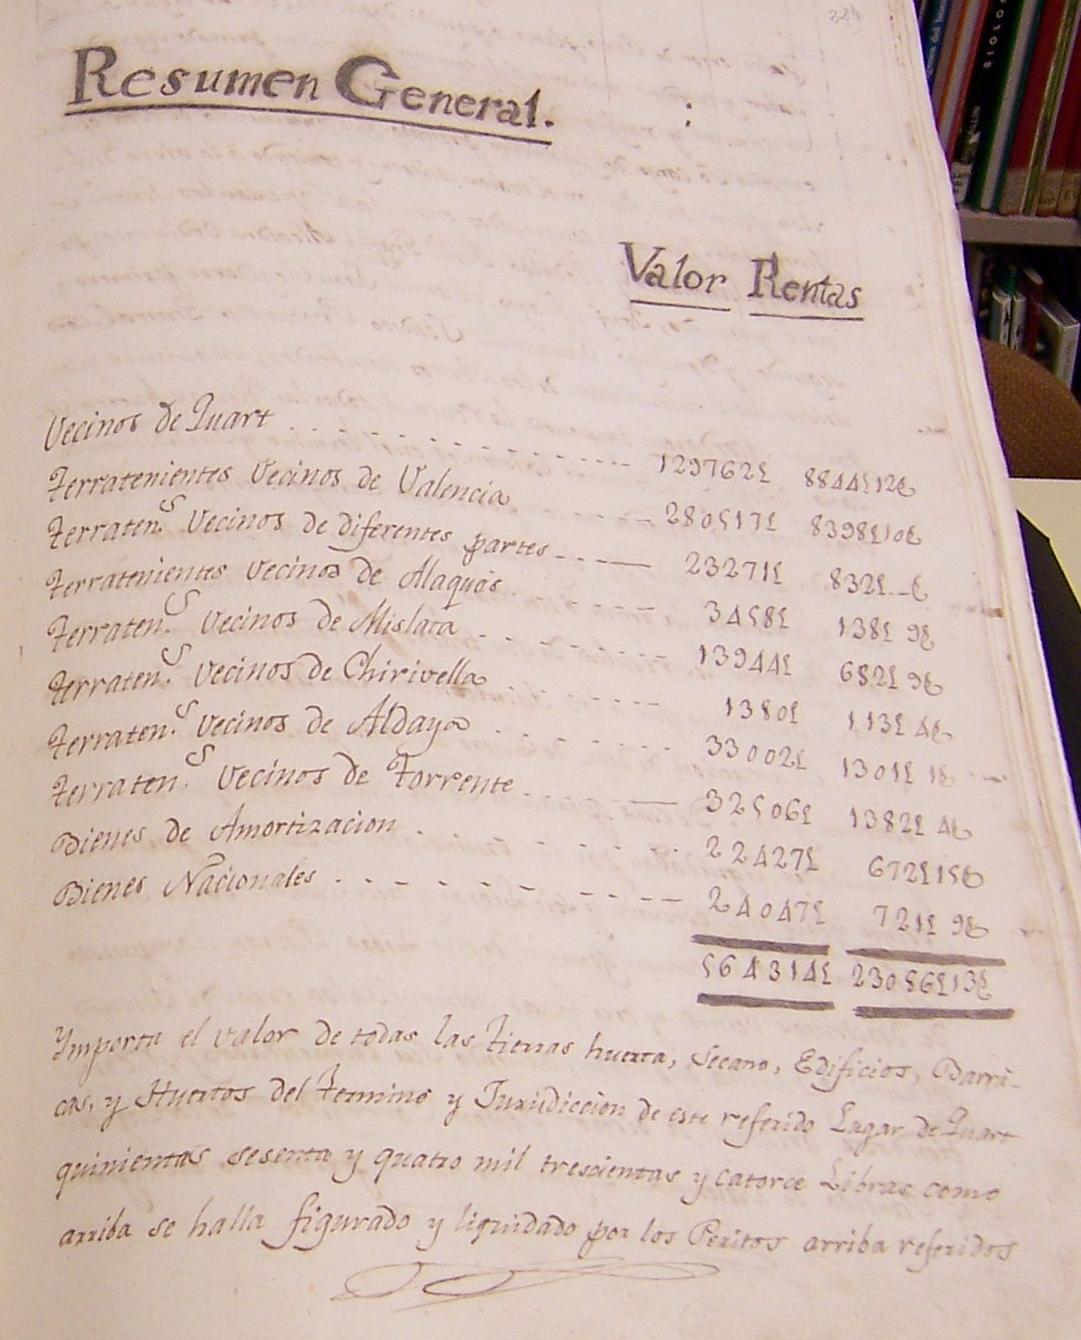 224
Resumen General.
Valor Rentas
Vecinos de Quart . . . . . . . . . . 129762£ 8844£12s
Terratenientes Vecinos de Valencia - - - - 280517£ 8398£10s
Terraten.s Vecinos de diferentes partes - - - - 23271£ 832£..s
Terratenientes Vecinos de Alaquás . - - - - 3458£ 138£ 9s
Terraten.s Vecinos de Mislata - - - - - 13944£ 682£ 9s
Terraten.s Vecinos de Chirivella . - - - - 1380£ 113£ 4s
Terraten.s Vecinos de Aldaya . . . . . . 33002£ 1301£ 1s
Terraten.s Vecinos de Torrente . . . - - 32506£ 1382£ 4s
Bienes de Amortizacion . . . . . . . 22427£ 672£15s
Bienes Nacionales . - - - - - - - - 24047£ 721£ 9s
564314£ 23086£13s
Ymporta el valor de todas las tierras huerta, secano, Edificios, Barri-
cas, y Huertos del Termino y Jurisdiccion de este referido Lugar de Quart
quinientas sesenta y quatro mil trescientas y catorce Libras como
arriba se halla figurado y liquidado por los Peritos arriba referidos